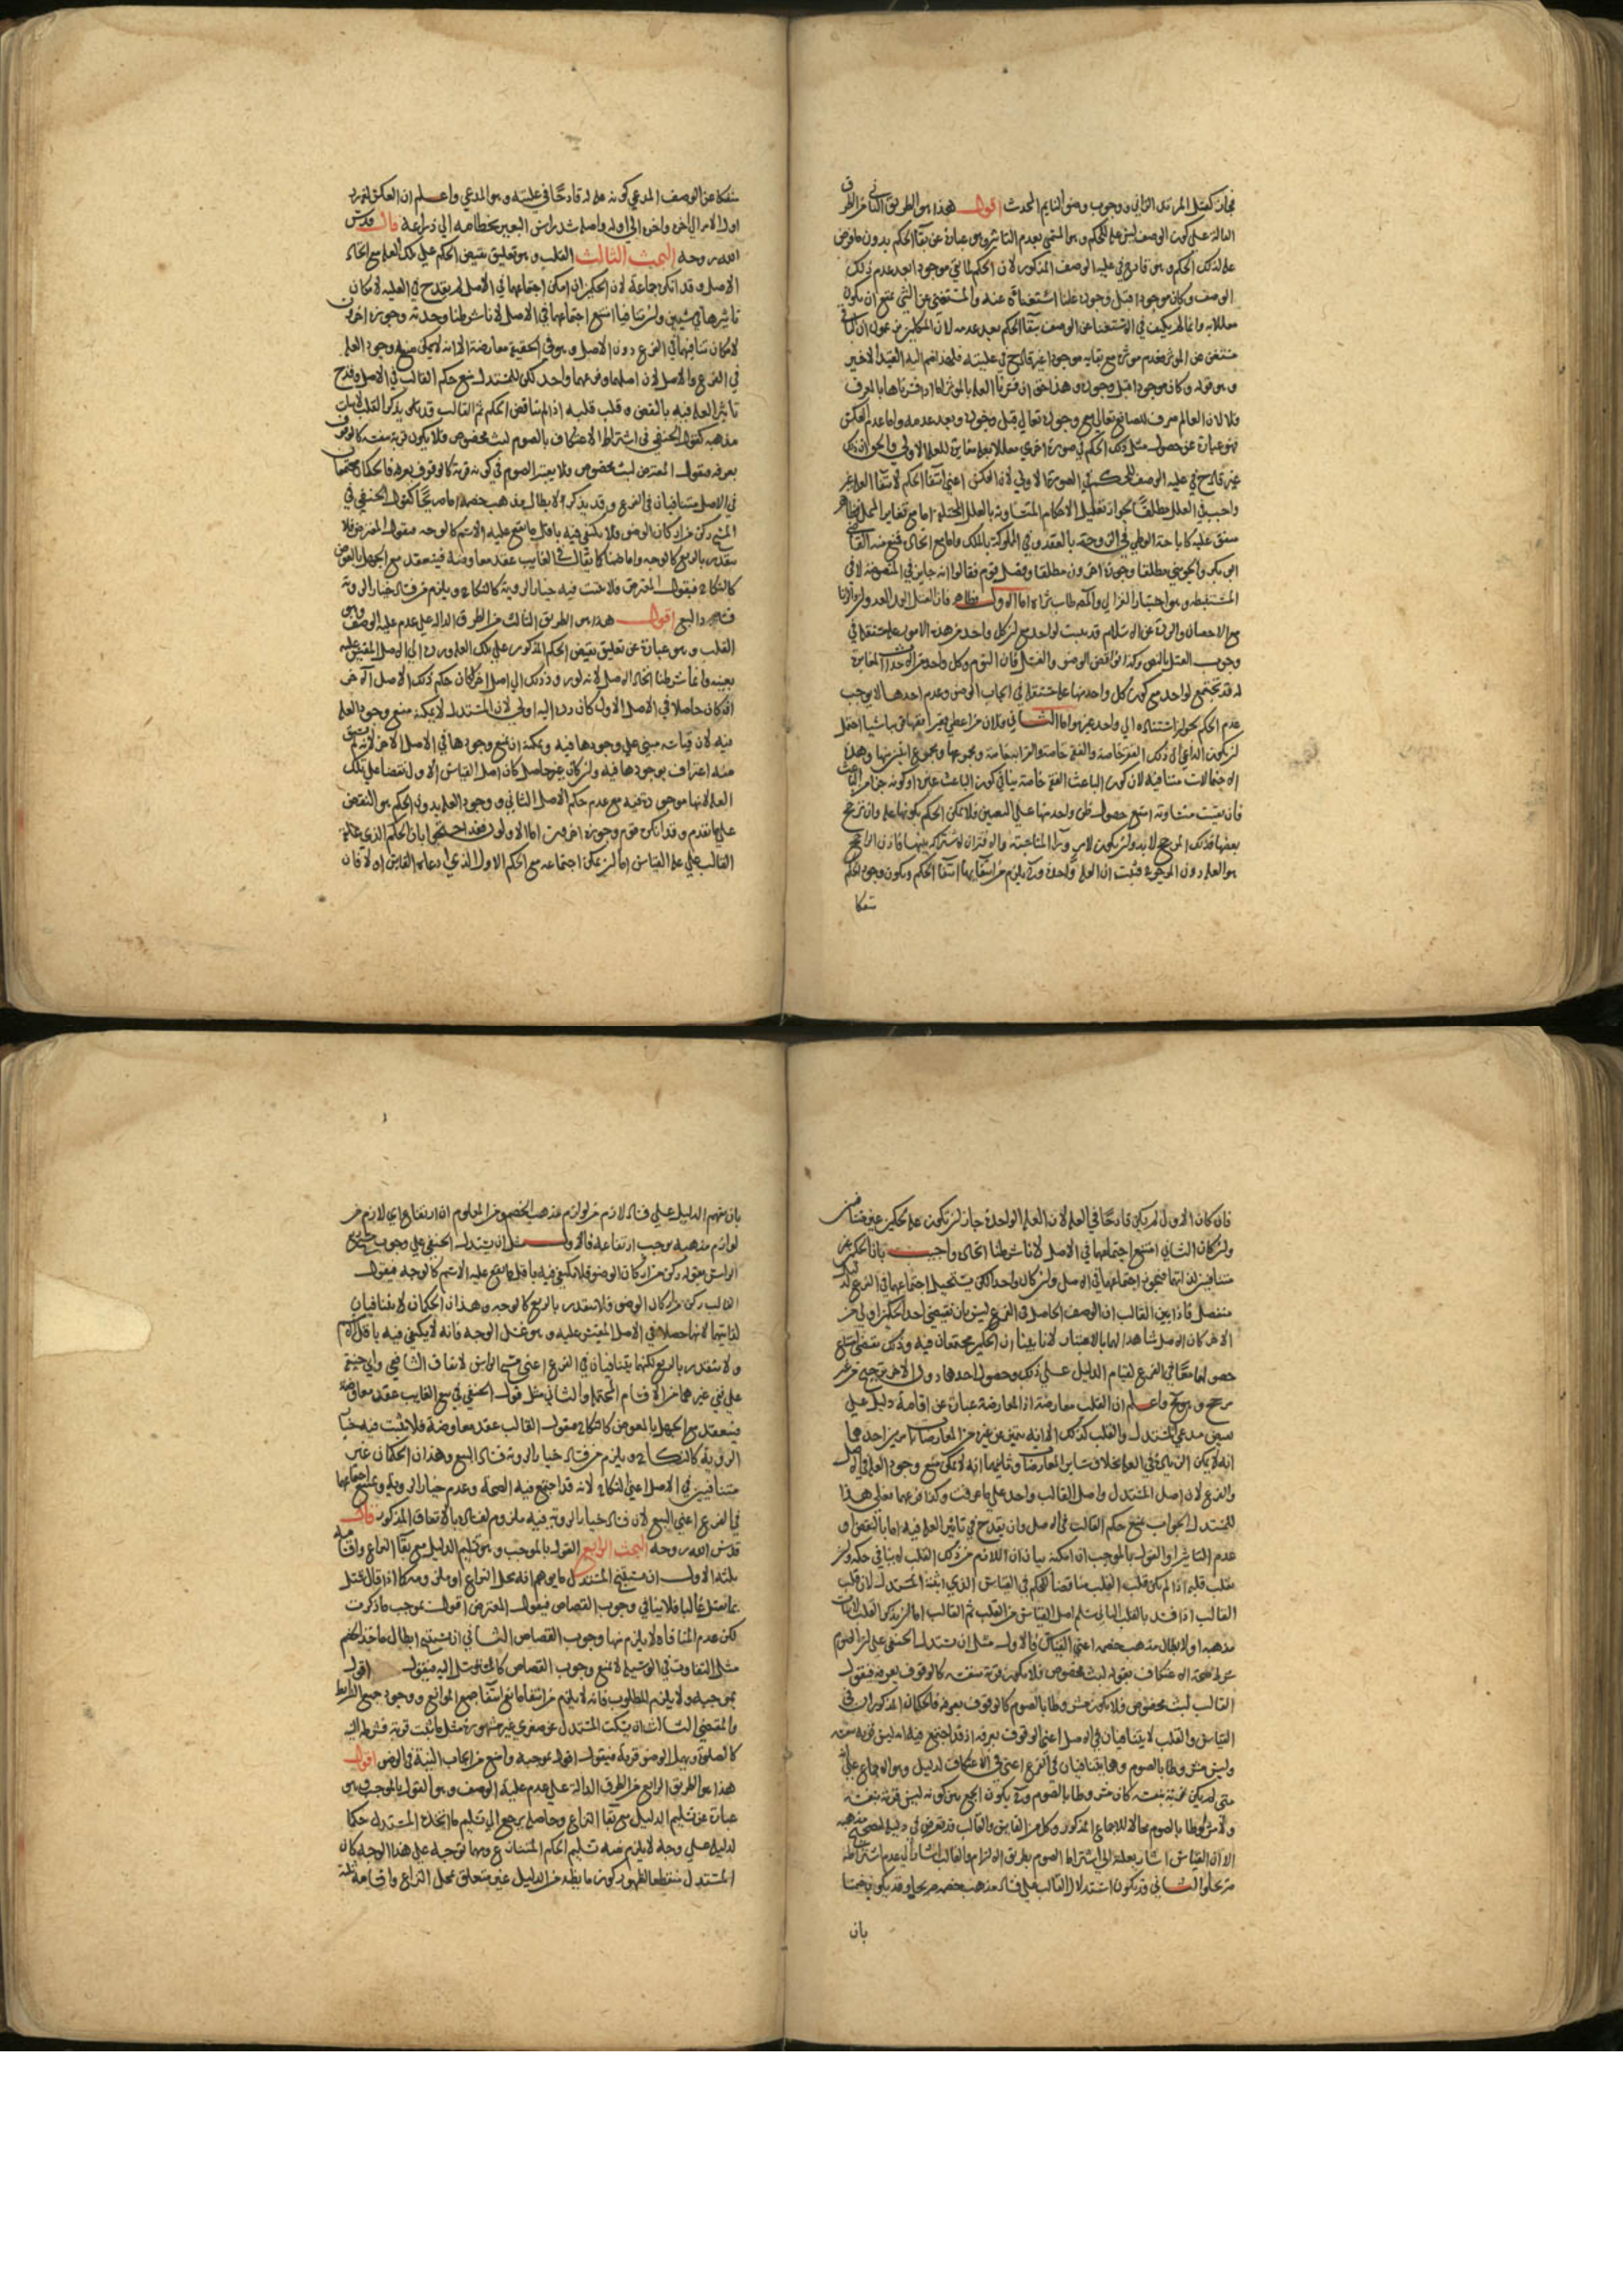 فجاز كقتل المرتد الزاني ووجوب وضوء النايم المحدث اقول هذا هو الطريق الثاني من الطرق
الدالة على كون الوصف ليس علة للحكم وهو المسمى بعدم التاثير وهو عبارة عن بقاء الحكم بدون ما فرض
علة لذلك الحكم وهو قادح في علية الوصف المذكور لان الحكم لما بقي موجودا بعد عدم ذلك
الوصف وكان موجودا قبل وجوده علمنا استغناءه عنه والمستغني عن الشي يمتنع ان يكون
معللا به وانما لم يكتف في الاستغنا عن الوصف ببقا الحكم بعد عدمه لان المتكلمين
وهو قوله وكان موجودا قبل وجوده وهذا حق ان فسرنا العلة بالموثر اما اذا فسرناها بالمعرف
فلا لان العالم معرف للصانع تعالى مع وجوده تعالى قبل وجوده وبعد عدمه واما عدم العكس
فهو عبارة عن حصول مثل ذلك الحكم في صورة اخرى معللا بعلة مغايرة للعلة الاولى
غير قادح في علية الوصف للحكم في الصورة الاولى لان العكس اعني انتفا الحكم لانتفا العلة غير
واجب في العلل مطلقا لجواز تعليل الاحكام المتساوية بالعلل المختلفة اما مع تغاير المحل فظاهر
متفق عليه كاباحة الوطي في الزوجة بالعقد وفي المملوكة بالملك واما مع اتحاده فمنع منه القاضي
ابو بكر والجويني مطلقا وجوزه اخرون مطلقا وفصل قوم فقالوا انه جايز في المنصوصة لا في
المستنبطة وهو اختيار الغزالي والمصنف طاب ثراه اما الاول فظاهر فان القتل
مع الاحصان والردة عن الاسلام قد يثبت لواحد مع ان كل واحد من هذه الامور علة مستقلة في
وجوب القتل بالنص وكذا نواقض الوضوء
له قد تجتمع لواحد مع كون كل واحد منها علة مستقلة في ايجاب الوضوء وعدم احدها لا يوجب
عدم الحكم لجواز استناده الى واحد غيره واما الثاني فلان من اعطى فقيرا فقيها قريبا شيا احتمل
ان يكون الداعي الى ذلك الفقر خاصة والفقه خاصة والقرابة خاصة ومجموعها ومجموع اثنين منها وهذه
الاحتمالات متنافية لان كون الباعث الفقه خاصة ينافي كون الباعث غيره او كونه جزء من الباعث
فان بقيت متساوية امتنع حصول ظن واحد منها على التعيين فلا يمكن الحكم بكونها علة وان ترجح
بعضها فذلك المرجح لابد وان يكون
هو العلة دون المرجوح فثبت ان العلة واحدة
منفكا
منفكا عن الوصف المدعي كونه علة له قادحا في عليته وهو المدعي واعلم ان العكس لغة رد
اول الامر الى اخره واخره الى اوله واصله شد راس البعير بخطامه الى ذراعه قال قدس
الله روحه البحث الثالث القلب وهو تعليق نقيض الحكم على تلك العلة مع اتحاد
الاصل وقد انكره جماعة لان الحكمين ان امكن اجتماعهما في الاصل لم يقدح في العلية لامكان
تاثيرها في شيين وان تنافيا امتنع اجتماعهما في الاصل لانا شرطنا وحدته وجوزه اخرون
لامكان تنافيهما في الفرع دون الاصل وهو في الحقيقة معارضة الا انه لا يمكن منع وجود العلة
في الفرع والاصل لان اصلهما وفرعهما واحد لكن للمستدل منع حكم القالب في الاصل وقدح
تاثير العلة فيه بالنقض وقلب قلبه اذا لم يناقض الحكم ثم القالب قد يذكر القلب لاثبات
مذهبه كقول الحنفي في اشتراط الاعتكاف بالصوم لبث مخصوص فلا يكون قربة بنفسه كالوقوف
بعرفة فيقول المعترض لبث مخصوص فلا يعتبر الصوم في كونه قربة كالوقوف بعرفة فالحكمان مجتمعان
في الاصل متنافيان في الفرع وقد يذكره لابطال مذهب خصمه اما صريحا كقول الحنفي في
المسح ركن من اركان الوضوء فلا يكتفى فيه باقل ما يقع عليه الاسم كالوجه فيقول المعترض فلا
يتقدر بالربع كالوجه واما ضمنا كما يقال في بيع الغايب عقد معاوضة فينعقد مع الجهل بالعوض
كالنكاح فيقول المعترض فلا يثبت فيه خيار الروية كالنكاح ويلزم من فساد خيار الروية
فساد البيع اقول هذا هو الطريق الثالث من الطرق الدالة على عدم علية الوصف وهو
القلب وهو عبارة عن تعليق نقيض الحكم المذكور على تلك العلة ورده الى الاصل المقيس عليه
بعينه وانما شرطنا اتحاد الاصل لانه لو رد ذلك الى اصل اخر لكان حكم ذلك الاصل الاخر
ان كان حاصلا في الاصل الاول كان رده اليه اولى لان المستدل لا يمكنه منع وجود العلة
فيه لان قياسه مبني على وجودها فيه ويمكنه ان يمنع وجودها في الاصل الاخر
منه اعتراف بوجودها فيه وان كان غير حاصل كان اصل القياس الاول نقضا على تلك
العلة لانها موجودة فيه مع عدم حكم الاصل الثاني ووجود العلة بدون الحكم هو النقض
على ما تقدم وقد انكره قوم وجوزه اخرون اما الاولون فقد احتجوا بان الحكم الذي علقه
القالب على علة القياس اما ان يمكن اجتماعه مع الحكم الاول الذي ادعاه القايس او لا فان
فان كان الاول لم يكن قادحا في العلة لان العلة الواحدة جاز ان يكون علة لحكمين غير متنافيين
وان كان الثاني امتنع اجتماعهما في الاصل لانا شرطنا اتحاده واجيب بان الحكمين غير
متنافيين لذاتهما فيجوز اجتماعهما في الاصل وان كان واحدا لكن يستحيل اجتماعهما في الفرع لدليل
منفصل فاذا بين القالب ان الوصف الحاصل في الفرع ليس بان يقتضي احد الحكمين اولى من
الاخر كان الاصل شاهدا لهما بالاعتبار لانا بينا ان الحكمين مجتمعان فيه وذلك يقتضي امتناع
حصولهما معا في الفرع لقيام الدليل على ذلك وحصول احدهما دون الاخر ترجيح من غير
مرجح واعلم ان القلب معارضة اذ المعارضة عبارة عن اقامة دليل على
نقيض مدعي المستدل والقلب كذلك الا انه يتميز عن غيره من المعارضات بامرين احدهما
انه لا يمكن الزيادة في العلة بخلاف ساير المعارضات وثانيهما انه لا يمكن منع وجود العلة في الاصل
والفرع لان اصل المستدل واصل القالب واحد على ما عرفت وكذا فرعهما فعلى هذا
للمستدل الجواب بمنع حكم القالب في الاصل وان يقدح في تاثير العلة فيه اما بالنقض او
عدم التاثير او القول بالموجب ان امكنه بيان ان اللازم من ذلك القلب لا ينافي حكمه وان
يقلب قلبه اذا لم يكن قلب القلب مناقضا للحكم في القياس الذي اثبته المستدل لان قلب
القالب اذا فسد بالقلب الثاني سلم اصل القياس من القلب ثم القالب اما ان يذكر القلب لاثبات
مذهبه او لابطال مذهب خصمه اعني القياس فالاول مثل ان يستدل الحنفي على ان الصوم
شرط لصحة الاعتكاف بقوله لبث مخصوص فلا يكون قربة بنفسه كالوقوف بعرفة فيقول
القالب لبث مخصوص فلا يكون مشروطا بالصوم كالوقوف بعرفة فالحكمان المذكوران في
القياس والقلب لا يتنافيان في الاصل اعني الوقوف بعرفة اذ قد اجتمع فيه انه ليس قربة بنفسه
وليس مشروطا بالصوم وهما يتنافيان في الفرع اعني في الاعتكاف لدليل وهو الاجماع على انه
متى لم يكن قربة بنفسه كان مشروطا بالصوم
ولا مشروطا بالصوم محالا للاجماع المذكور وكل من القايس والقالب قد تعرض في دليله لتصحيح مذهبه
الا ان القياس اشار بعلته الى اشتراط الصوم بطريق الالتزام والقالب اشار الى عدم اشتراطه
صريحا والثاني قد يكون استدلال القالب على فساد مذهب خصمه صريحا وقد يكون ضمنا
بان
بان يقيم الدليل على فساد لازم من لوازم مذهب الخصم ومن المعلوم ان ارتفاع اي لازم من
لوازم مذهبه يوجب ارتفاعه فالاول مثل ان يستدل الحنفي على وجوب مسح ربع
الراس بقوله ركن من اركان الوضوء فلا يكتفى فيه باقل ما يقع عليه الاسم كالوجه فيقول
القالب ركن من اركان الوضوء فلا يتقدر بالربع كالوجه وهذان الحكمان لا يتنافيان
لذاتيهما لانهما حصلا في الاصل المقيس عليه وهو غسل الوجه فانه لا يكتفى فيه باقل الاسم
ولا يتقدر بالربع لكنهما يتنافيان في الفرع اعني مسح الراس لاتفاق الشافعي وابي حنيفة
على نفي غيرهما من الاقسام المحتملة والثاني مثل قول الحنفي في بيع الغايب عقد معاوضة
فينعقد مع الجهل بالعوض كالنكاح فيقول القالب عقد معاوضة فلا يثبت فيه خيار
الروية كالنكاح ويلزم من فساد خيار الروية فساد البيع وهذان الحكمان غير
متنافيين في الاصل اعني النكاح لانه قد اجتمع فيه الصحة وعدم خيار الروية ويمتنع اجتماعهما
في الفرع اعني البيع لان فساد خيار الروية فيه ملزوم لفساده بالاتفاق المذكور قال
قدس الله روحه البحث الرابع القول بالموجب وهو تسليم الدليل مع بقا النزاع واقسامه
ثلثة الاول ان يستنتج المستدل ما يوهم انه محل النزاع او ملزومه كما اذا قال قتل
بما يقتل غالبا فلا ينافي وجوب القصاص فيقول المعترض اقول بموجب ما ذكرت
لكن عدم المنافاة لا يلزم منها وجوب القصاص الثاني ان يستنتج ابطال ماخذ الخصم
مثل التفاوت في الوسيلة لا يمنع وجوب القصاص كالمتوسل اليه فيقول اقول
بموجبه ولا يلزم المطلوب فانه لا يلزم من انتفا مانع انتفا جميع الموانع ووجود جميع الشرايط
والمقتضي الثالث ان يسكت المستدل عن صغرى غير مشهورة مثل ما يثبت قربة فشرطه النية
كالصلوة ويهمل الوضوء قربة فيقول اقول بموجبه وامنع من ايجاب النية في الوضوء اقول
هذا هو الطريق الرابع من الطرق الدالة على عدم علية الوصف وهو القول بالموجب وهو
عبارة عن تسليم الدليل مع بقا النزاع وحاصله يرجع الى تسليم ما اتخذه المستدل حكما
لدليله على وجه لا يلزم منه تسليم الحكم المتنازع ومهما توجه على هذا الوجه كان
المستدل منقطعا لظهور كون ما نظمه من الدليل غير متعلق بمحل النزاع واقسامه ثلثة